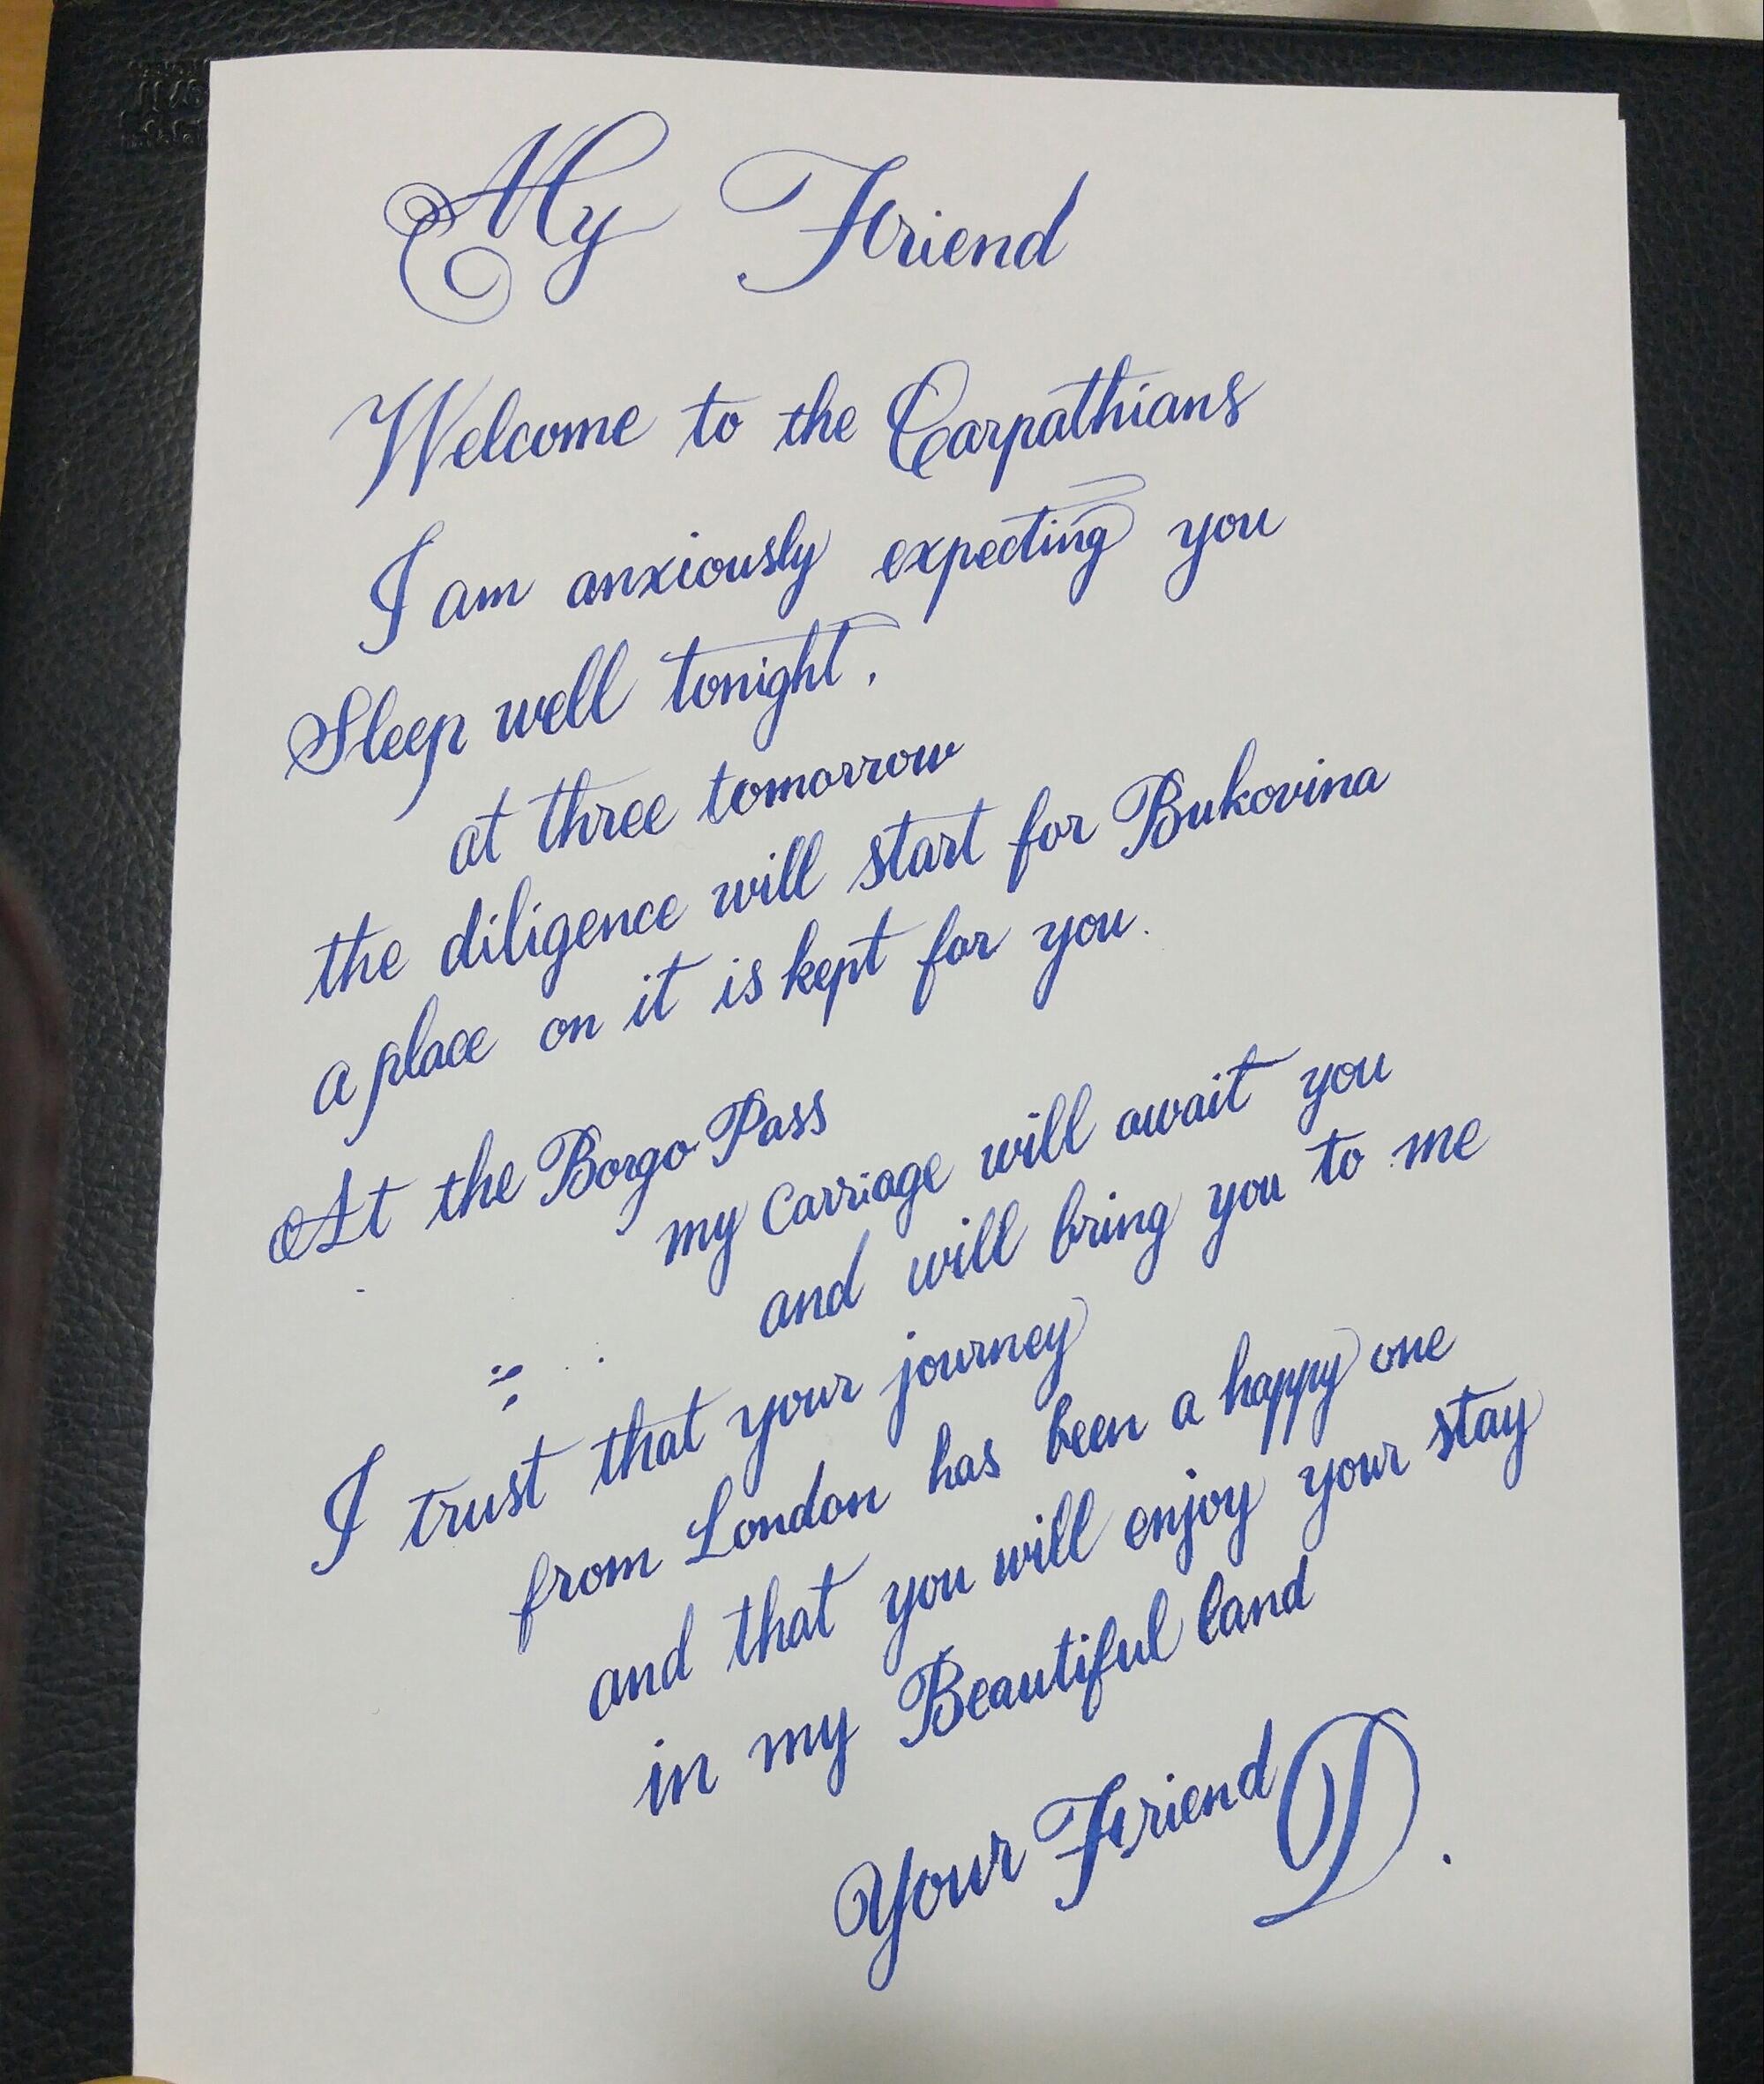 My Friend
Welcome to the Carpathians
I am anxiously expecting you
Sleep well tonight.
at three tomorrow
the diligence will start for Bukovina
a place on it is kept for you.
At the Borgo Pass
my Carriage will await you
and will bring you to me
I trust that your journey
from London has been a happy one
and that you will enjoy your stay
in my Beautiful land
Your Friend D.